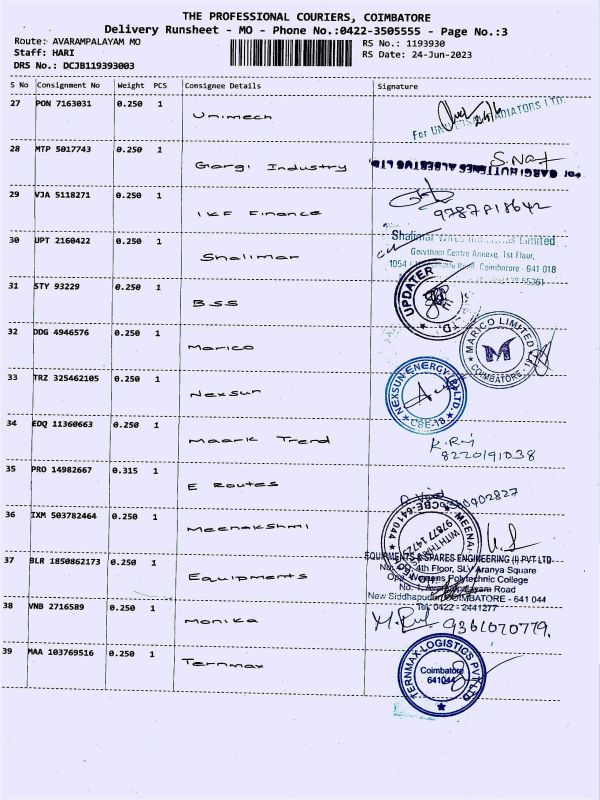 THE PROFESSIONAL COURIERS, COIMBATORE
Delivery Runsheet - MO - Phone No.:0422-3505555 - Page No.:3
Route: AVARAMPALAYAM MO
RS No.: 1193930
Staff: HARI
RS Date: 24-Jun-2023
DRS No.: DCJB119393003
S No Consignment No Weight PCS Consignee Details Signature
27 PON 7163031 0.250 1 Unimech
For ADIATORS LTD
28 MTP 5017743 0.250 1 Gargi Industry
For GARGI HUTTENES ALBERTUS LTD
29 VJA 5118271 0.250 1 IKF Finance
30 UPT 2160422 0.250 1 Shalimar
Shalimar Wires Limited
Gowtham Centre Annexe, 1st Floor,
Coimbatore - 641 018
31 STY 93229 0.250 1 BSS
UPDATER LTD.
32 DDG 4946576 0.250 1 Marico
MARICO LIMITED
M
COIMBATORE
33 TRZ 325462105 0.250 1 Nexsun
NEXSUN ENERGY (P) LTD.
CBE-18
34 EDQ 11360663 0.250 1 Maark Trend
8220191038
35 PRO 14982667 0.315 1 E Routes
36 IXM 503782464 0.250 1 Meenakshmi
MEENA
CBE-641044
WITH
37 BLR 1850862173 0.250 1 Equipments
EQUIPMENTS & SPARES ENGINEERING (I) PVT LTD
4th Floor, SLV Aranya Square
Opp. Womens Polytechnic College
Road
New Siddhapudur, COIMBATORE - 641 044
Tel: 0422 - 2441277
38 VNB 2716589 0.250 1 Monika
9361070779.
39 MAA 103769516 0.250 1 Ternmax
TERNMAX LOGISTICS PVT LTD
Coimbatore
641044